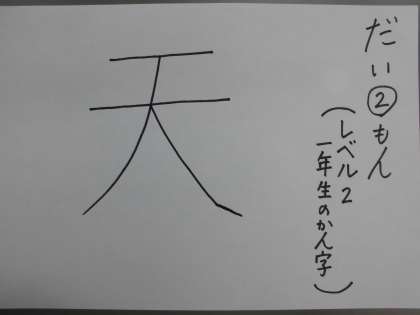 だい②もん
(レベル2
一年生のかん字)
天